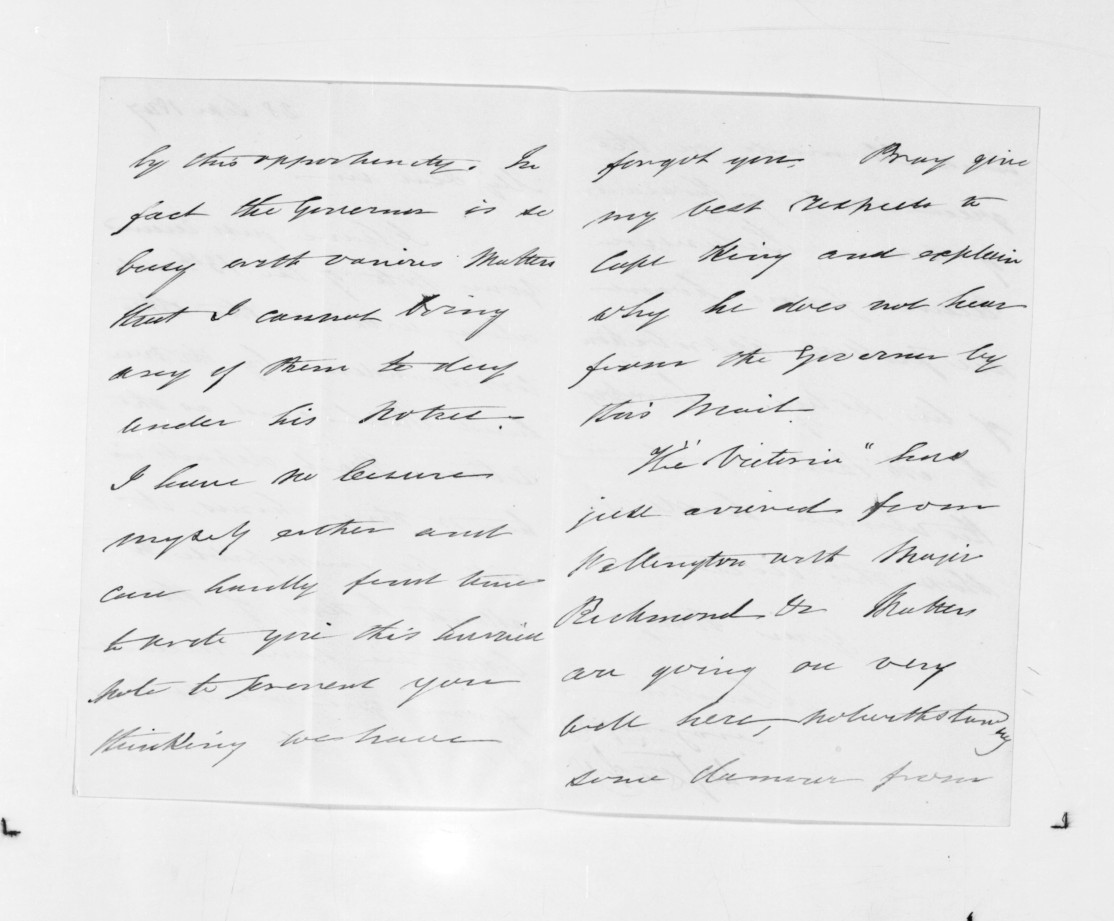 by this opportunity. In
fact the Governor is so
busy with various Matters
that I cannot bring
any of them to day
under his Notice.
I have no leisure
myself either and
can hardly find time
to write you this hurried
Note to prevent you
thinking we have
forgot you. Pray give
my best respects to
Capt King and explain
why he does not hear
from the Governor by
this Mail.
The "Victoria" has
just arrived from
Wellington with Major
Richmond &c Matters
are going on very
well here, notwithstanding
some clamour from